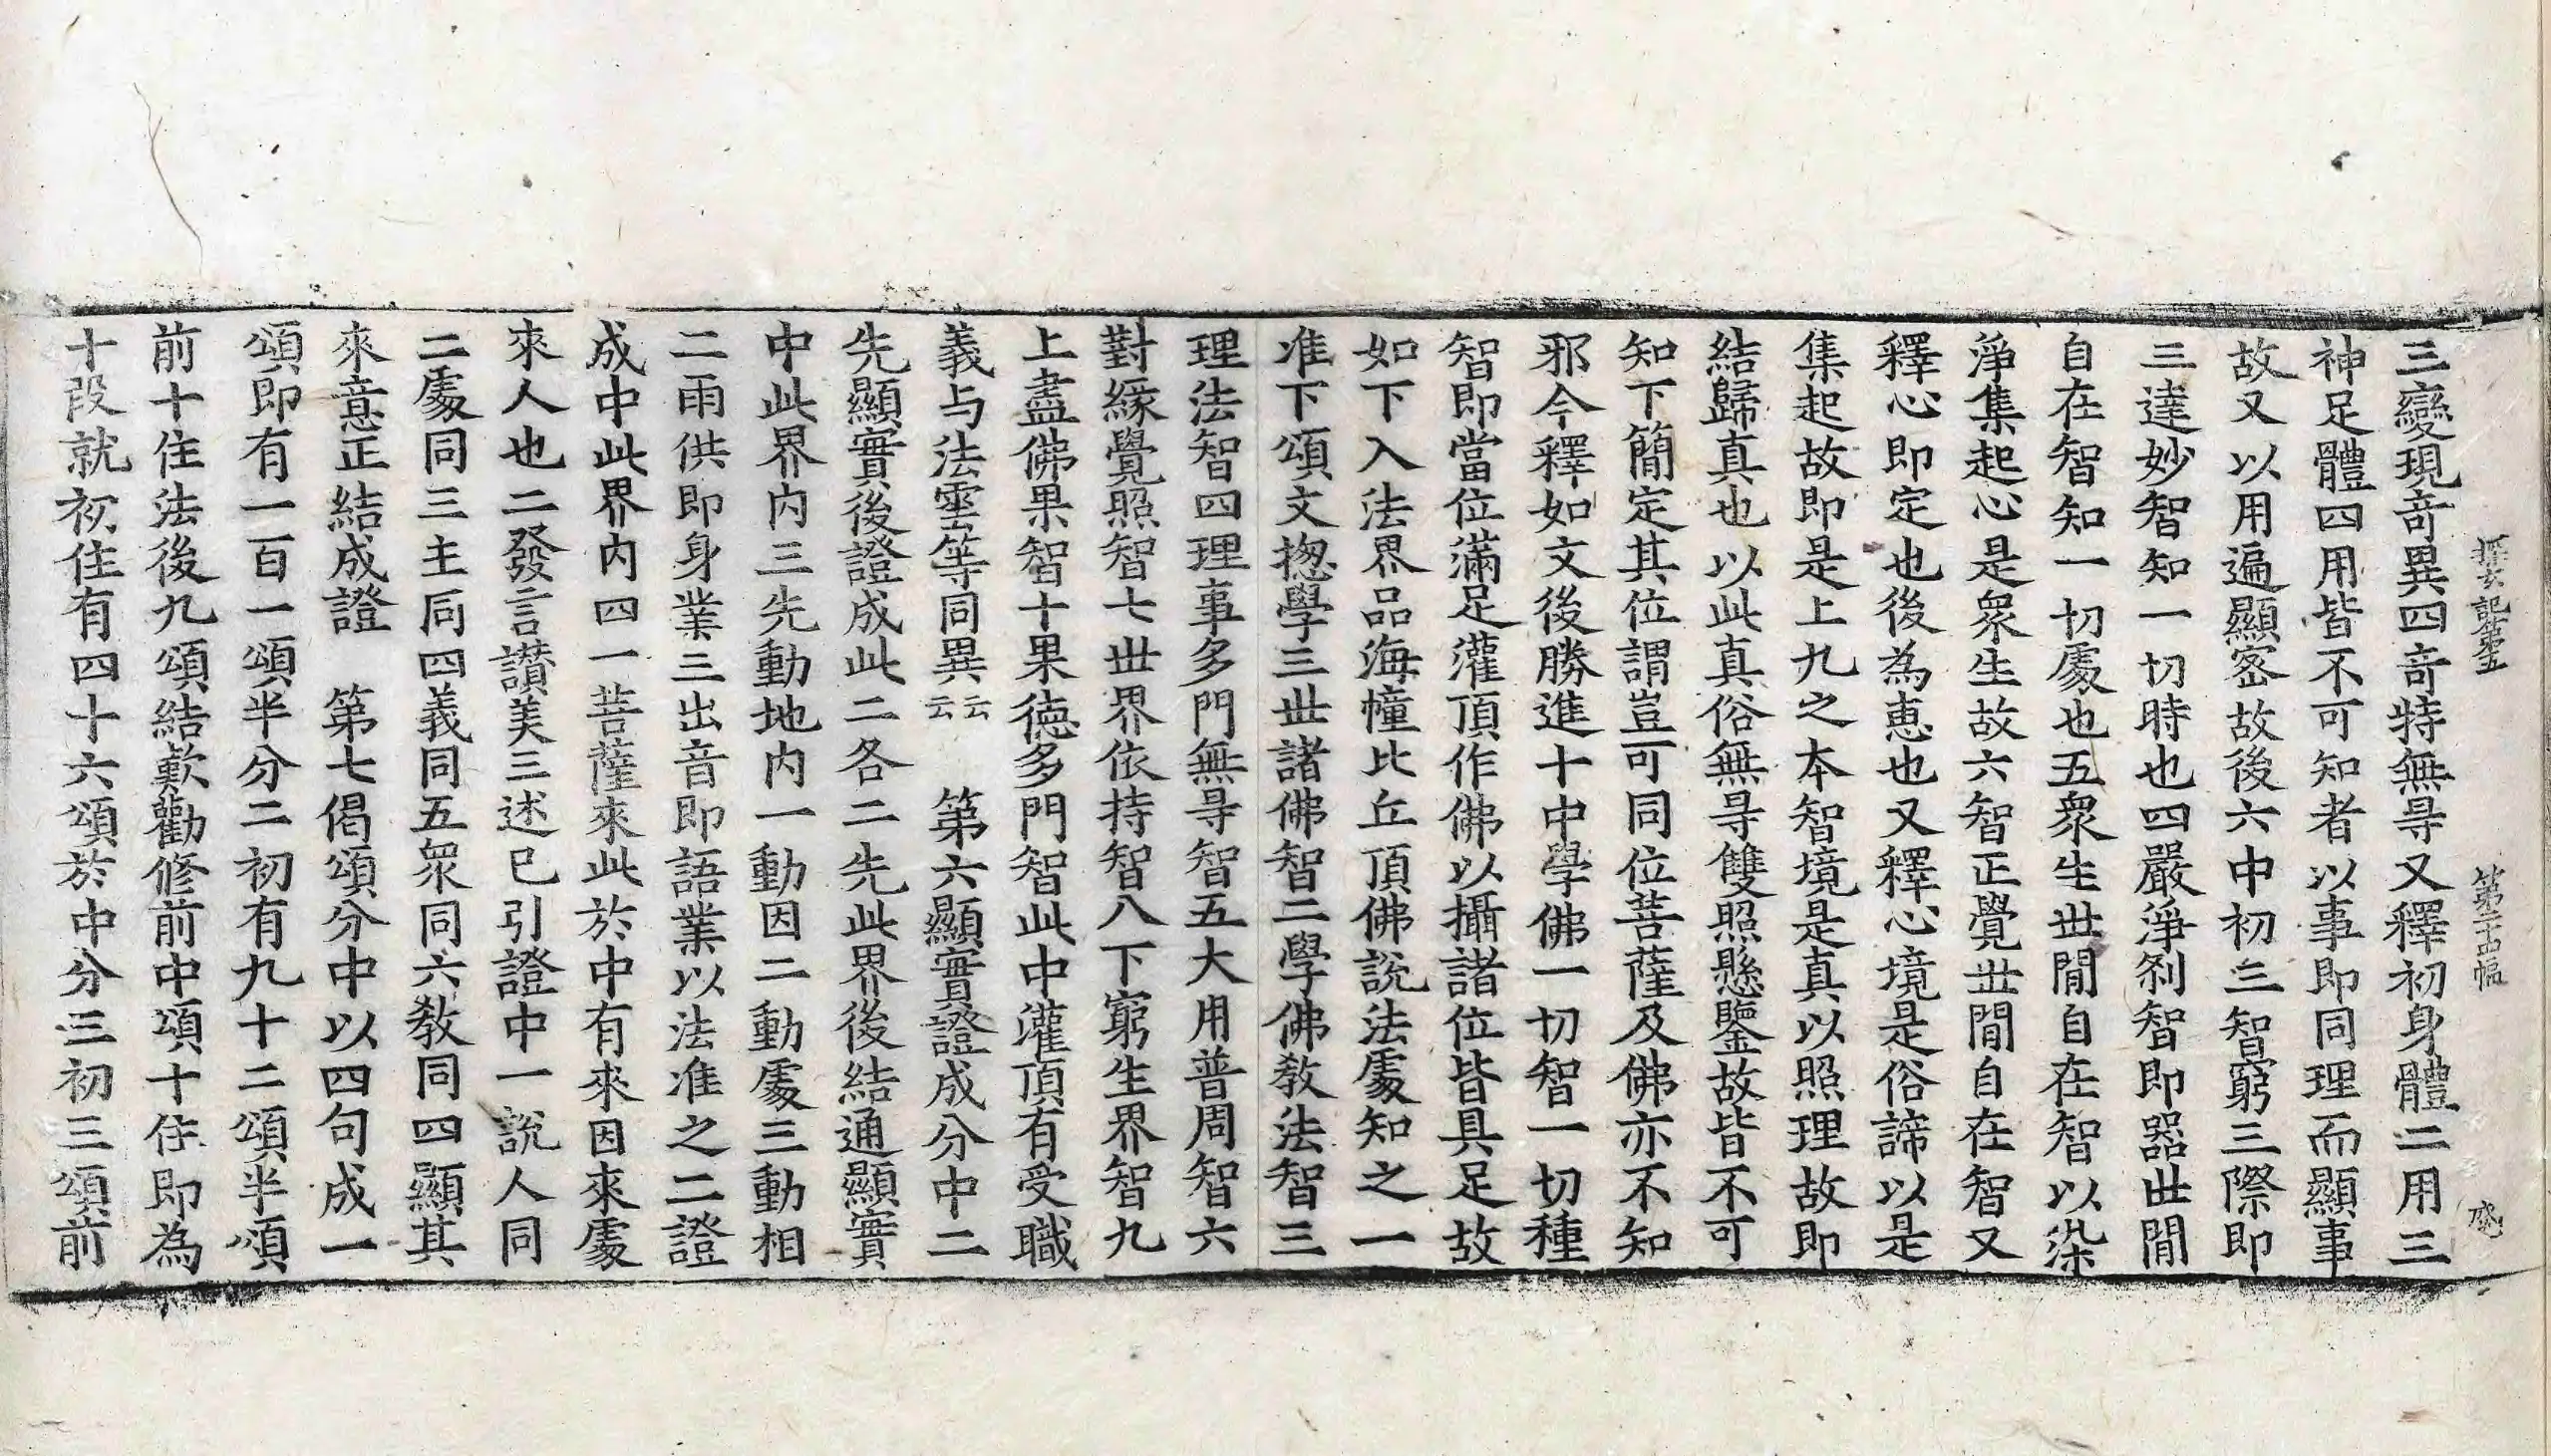 探玄記第五　第二十五幅　感
三變現竒異四竒特無㝵又釋初身體二用三
神足體四用皆不可知者以事即同理而顯事
故又以用遍顯宻故後六中初三智窮三際即
三達妙智知一切時也四嚴淨刹智即器丗閒
自在智知一切處也五衆生丗閒自在智以染
淨集起心是衆生故六智正覺丗閒自在智又
釋心即定也後為恵也又釋心境是俗諦以是
集起故即是上九之本智境是真以照理故即
結歸真也以此真俗無㝵雙照懸鑒故皆不可
知下簡定其位謂豈可同位菩薩及佛亦不知
邪今釋如文後勝進十中學佛一切智一切種
智即當位滿足灌頂作佛以攝諸位皆具足故
如下入法界品海幢比丘頂佛說法處知之一
准下頌文揔學三丗諸佛智二學佛教法智三
理法智四理事多門無㝵智五大用普周智六
對緣覺照智七丗界依持智八下窮生界智九
上盡佛果智十果德多門智此中灌頂有受職
義与法雲等同異云云　第六顯實證成分中二
先顯實後證成此二各二先此界後結通顯實
中此界内三先動地内一動因二動處三動相
二雨供即身業三出音即語業以法准之二證
成中此界内四一菩薩來此於中有來因來處
來人也二發言讃美三述已引證中一說人同
二處同三主同四義同五衆同六教同四顯其
來意正結成證　第七偈頌分中以四句成一
頌即有一百一頌半分二初有九十二頌半頌
前十住法後九頌結歎勸修前中頌十住即為
十段就初住有四十六頌於中分三初三頌前